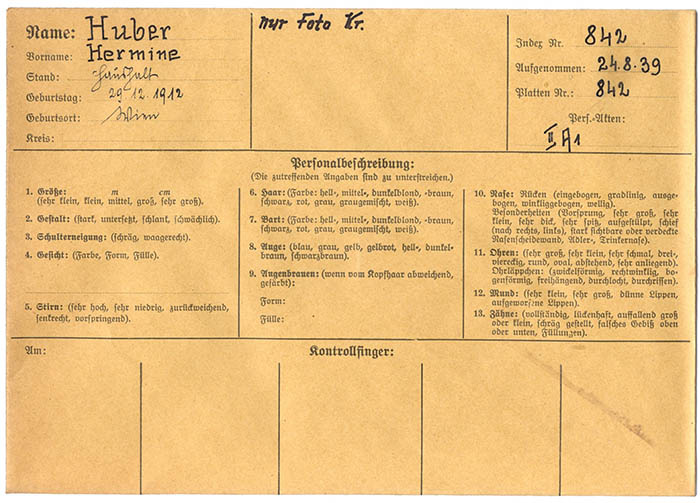 Name: Huber
Vorname: Hermine
Stand: Haushalt
Geburtstag: 29.12.1912
Geburtsort: Wien
Kreis:
nur Foto Kr.
Index Nr. 842
Aufgenommen: 24.8.39
Platten Nr.: 842
Pers.-Akten:
II A1
Personalbeschreibung:
(Die zutreffenden Angaben sind zu unterstreichen.)
1. Größe: m cm
(sehr klein, klein, mittel, groß, sehr groß).
2. Gestalt: (stark, untersetzt, schlank, schwächlich).
3. Schulterneigung: (schräg, waagerecht).
4. Gesicht: (Farbe, Form, Fülle).
5. Stirn: (sehr hoch, sehr niedrig, zurückweichend,
senkrecht, vorspringend).
6. Haar: (Farbe: hell-, mittel-, dunkelblond, -braun,
schwarz, rot, grau, graugemischt, weiß).
7. Bart: (Farbe: hell-, mittel-, dunkelblond, -braun,
schwarz, rot, grau, graugemischt, weiß).
8. Auge: (blau, grau, gelb, gelbrot, hell-, dunkel-
braun, schwarzbraun).
9. Augenbrauen: (wenn vom Kopfhaar abweichend,
gefärbt):
Form:
Fülle:
10. Nase: Rücken (eingebogen, gradlinig, ausge-
bogen, winkliggebogen, wellig).
Besonderheiten (Vorsprung, sehr groß, sehr
klein, sehr dick, sehr spitz, aufgestülpt, schief
(nach rechts, links), stark sichtbare oder verdeckte
Nasenscheidewand, Adler-, Trinkernase).
11. Ohren: (sehr groß, sehr klein, sehr schmal, drei-,
viereckig, rund, oval, abstehend, sehr anliegend).
Ohrläppchen: (zwickelförmig, rechtwinklig, bo-
genförmig, freihängend, durchlocht, durchrissen).
12. Mund: (sehr klein, sehr groß, dünne Lippen,
aufgeworfene Lippen).
13. Zähne: (vollständig, lückenhaft, auffallend groß
oder klein, schräg gestellt, falsches Gebiß oben
oder unten, Füllungen).
Am:
Kontrollfinger: